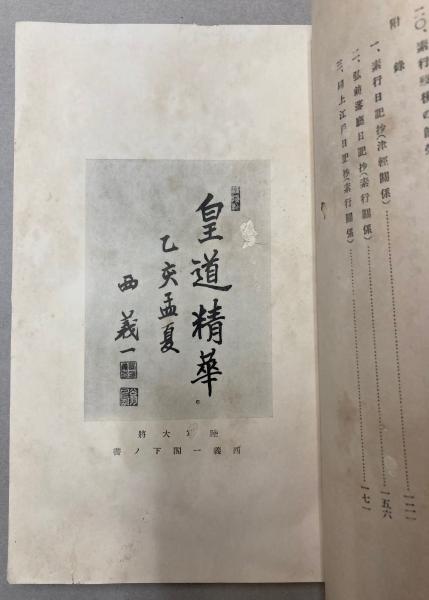 附録
一、素行日記抄(津輕關係)……一二一
二、弘前藩廳日記抄(素行關係)……一五六
三、同上江戸日記抄(素行關係)……一七一
皇道精華
乙亥孟夏
西義一
陸軍大將
西義一閣下ノ書